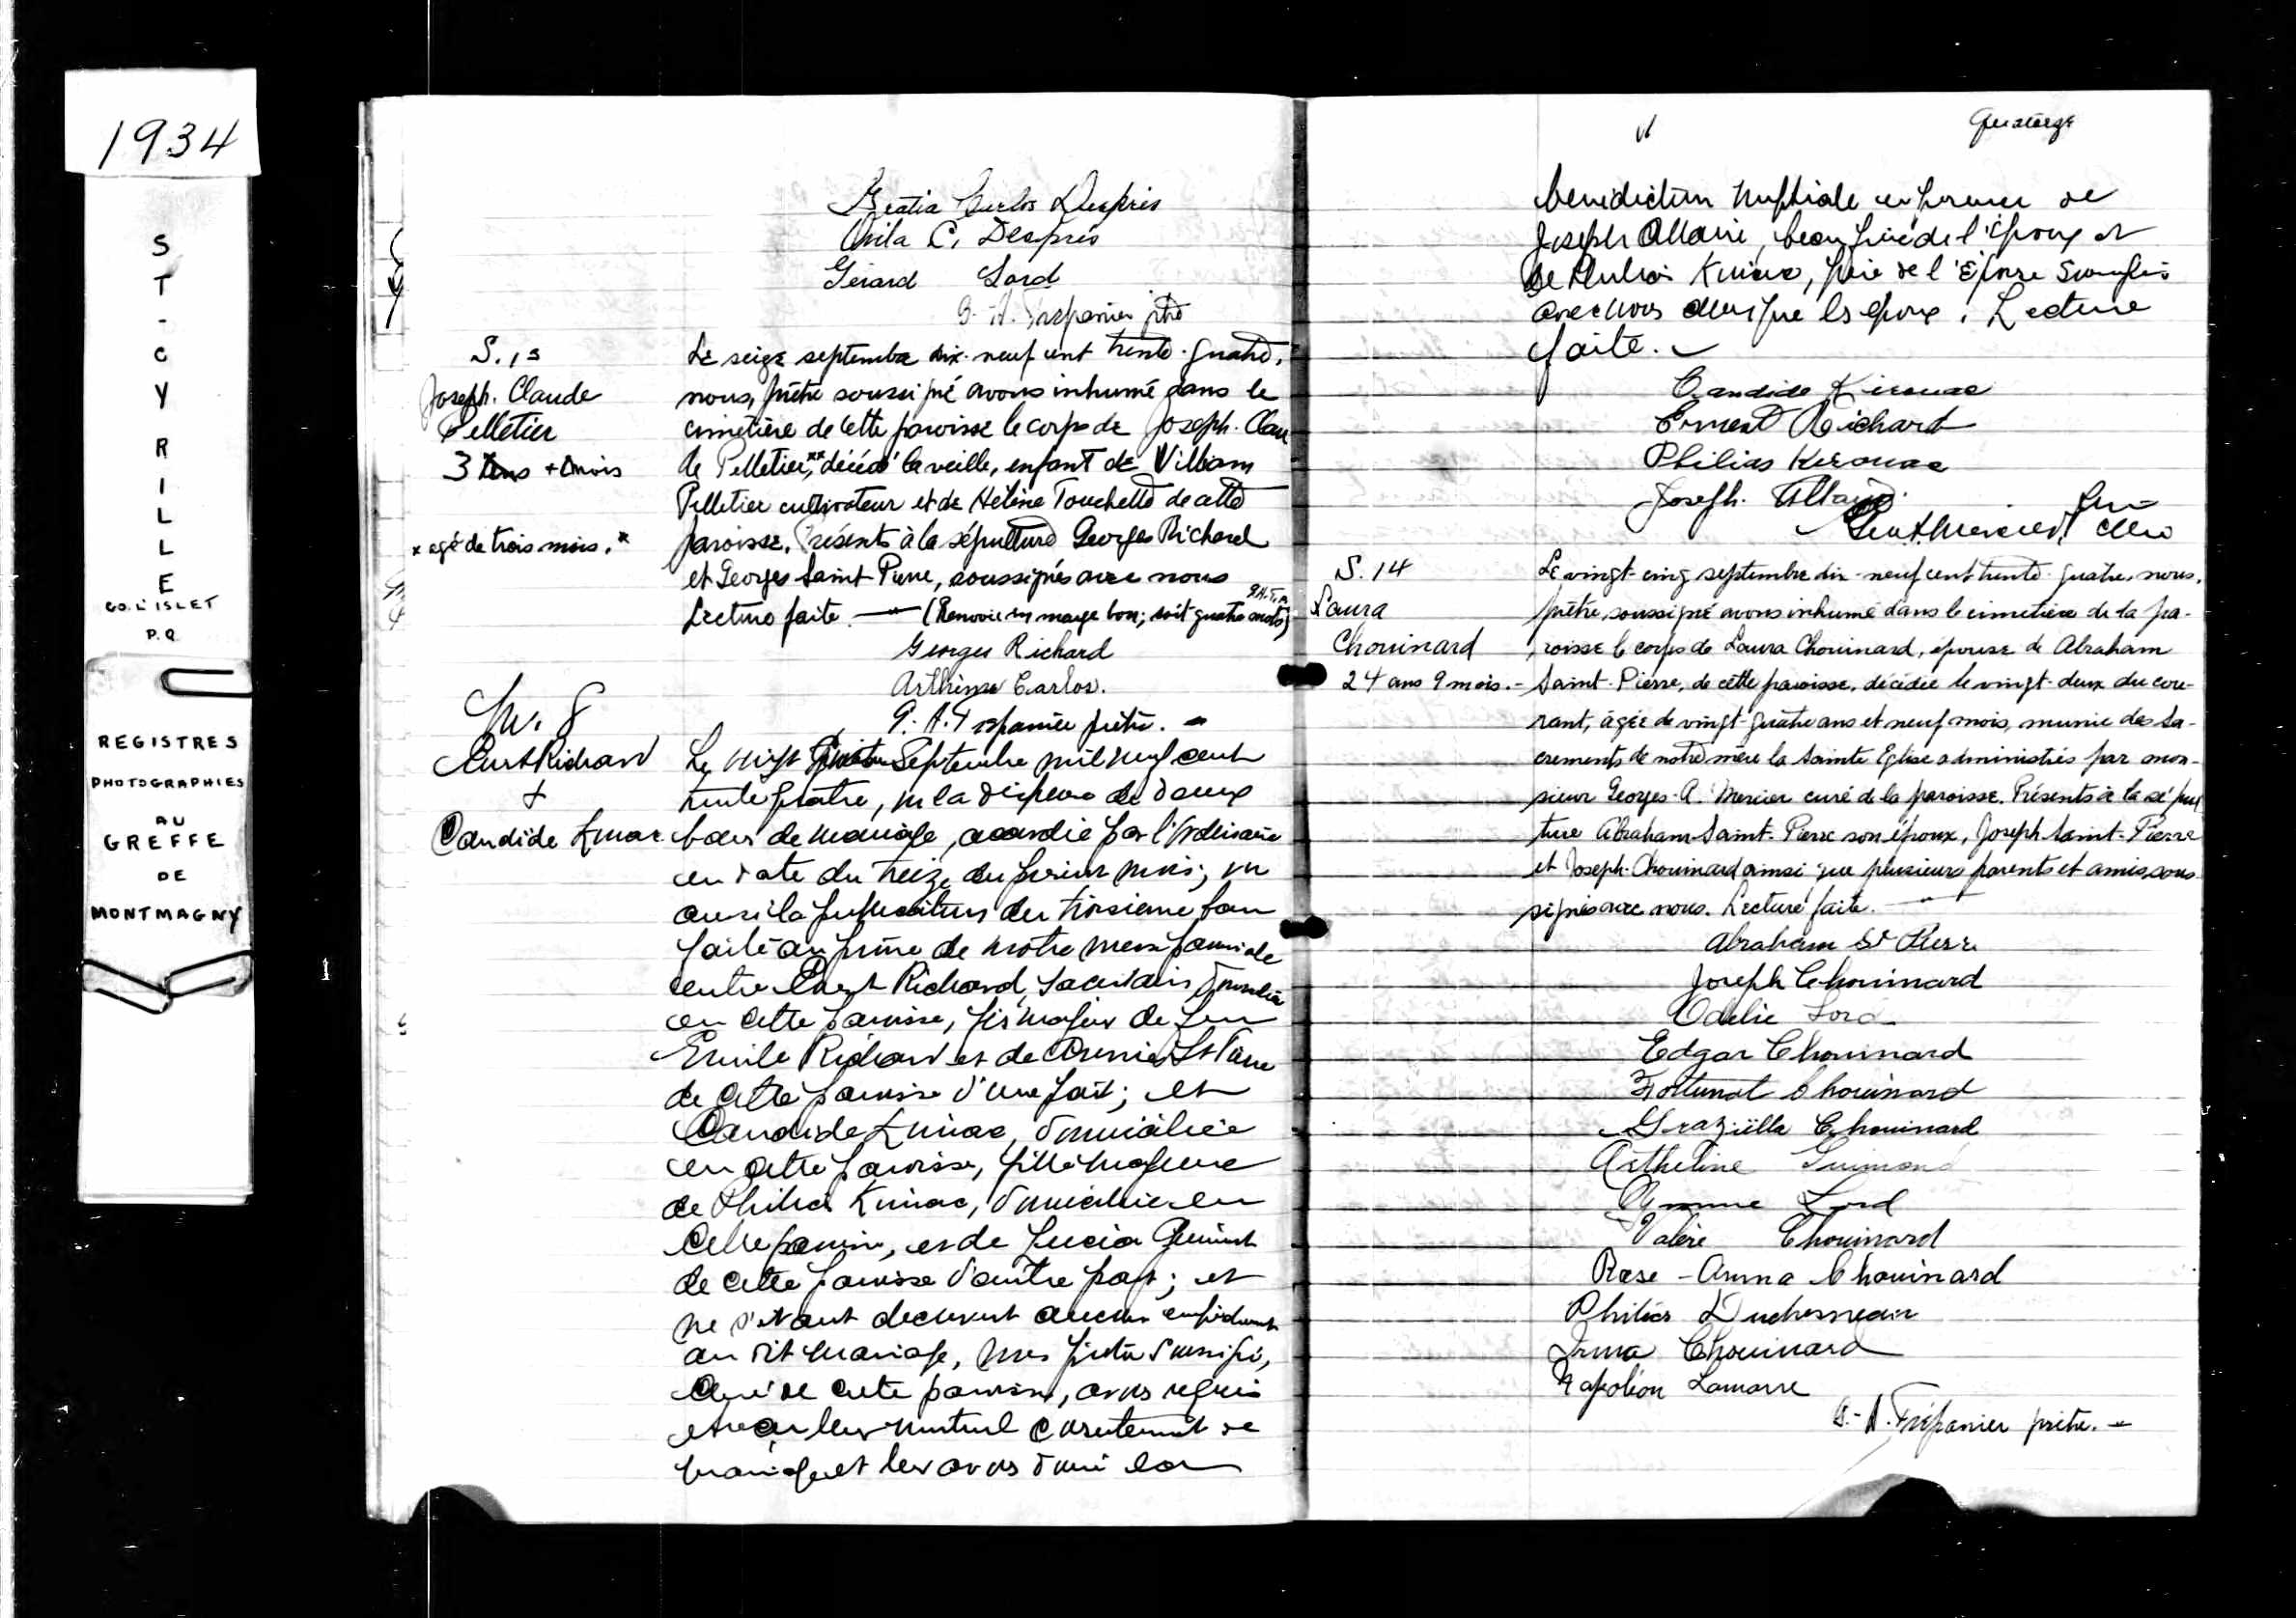 1934
ST-CYRILLE
CO. L'ISLET
P.Q.
REGISTRES
PHOTOGRAPHIES
AU
GREFFE
DE
MONTMAGNY
Carlos Després
C. Després
Gérard Lord
G. A. Trépanier ptre
S. 13
Joseph. Claude
Pelletier
3 mois
* agé de trois mois. *
Le seize septembre dix-neuf cent trente-quatre,
nous, prêtre soussigné avons inhumé dans le
cimetière de cette paroisse le corps de Joseph. Clau
de Pelletier,** décédé la veille, enfant de William
Pelletier cultivateur et de Hélène Touchette de cette
paroisse. Présents à la sépulture Georges Richard
et Georges Saint-Pierre, soussignés avec nous
Lecture faite. — (Renvoi en marge bon; soit quatre mots)
Georges Richard
Arthémse Carlos.
G. A. Trépanier prêtre. -
M. 8
Ernest Richard
+
Candide
Le vingt Septembre mil neuf cent
trente quatre, vu la dispense de deux
bans de mariage, accordée par l'Ordinaire
en date du treize du présent mois; vu
aussi la publication du troisième ban
faite au prône de notre messe paroissiale
entre Ernest Richard, domicilié
en cette paroisse, fils majeur de feu
Emile Richard et de St Pierre
de cette paroisse d'une part; et
Candide Kirouac, domiciliée
en cette paroisse, fille majeure
de Philias Kirouac, domicilié en
cette paroisse, et de Lucia
de cette paroisse d'autre part; et
ne s'étant découvert aucun empêchement
au dit mariage, nous prêtre soussigné,
curé de cette paroisse, avons requis
et reçu leur mutuel consentement de
mariage et leur avons donné la
quatorze
bénédiction nuptiale en présence de
Joseph Allaire, beau frère de l'époux et
de Philias Kirouac, père de l'épouse soussignés
avec nous ainsi que les époux. Lecture
faite.
Candide Kirouac
Ernest Richard
Philias Kerouac
Joseph. Allaire
Geo. A. Mercier, ptre
curé
S. 14
Laura
Chouinard
24 ans 9 mois.-
Le vingt-cinq septembre dix-neuf cent trente-quatre, nous,
prêtre, soussigné avons inhumé dans le cimetière de la pa-
roisse le corps de Laura Chouinard, épouse de Abraham
Saint-Pierre, de cette paroisse, décédée le vingt-deux du cou-
rant, âgée de vingt-quatre ans et neuf mois, munie des sa-
crements de notre mère la Sainte Eglise administrés par mon-
sieur Georges-A. Mercier curé de la paroisse. Présents à la sépul
ture Abraham Saint-Pierre son époux, Joseph Saint-Pierre
et Joseph-Chouinard ainsi que plusieurs parents et amis, sous-
signés avec nous. Lecture faite. —
Abraham St Pierre
Joseph Chouinard
Odélie Lord
Edgar Chouinard
Fortunat Chouinard
Graziella Chouinard
Artheline Guimond
Lord
Valère Chouinard
Rose-Anna Chouinard
Philias Duchesneau
Irma Chouinard
Napoléon Lamarre
G.-A. Trépanier prêtre. -